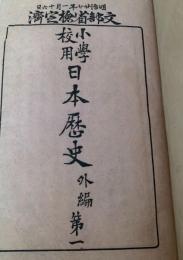 明治廿七年一月十六日
文部省檢定濟
小學校用
日本歷史
外編
第一